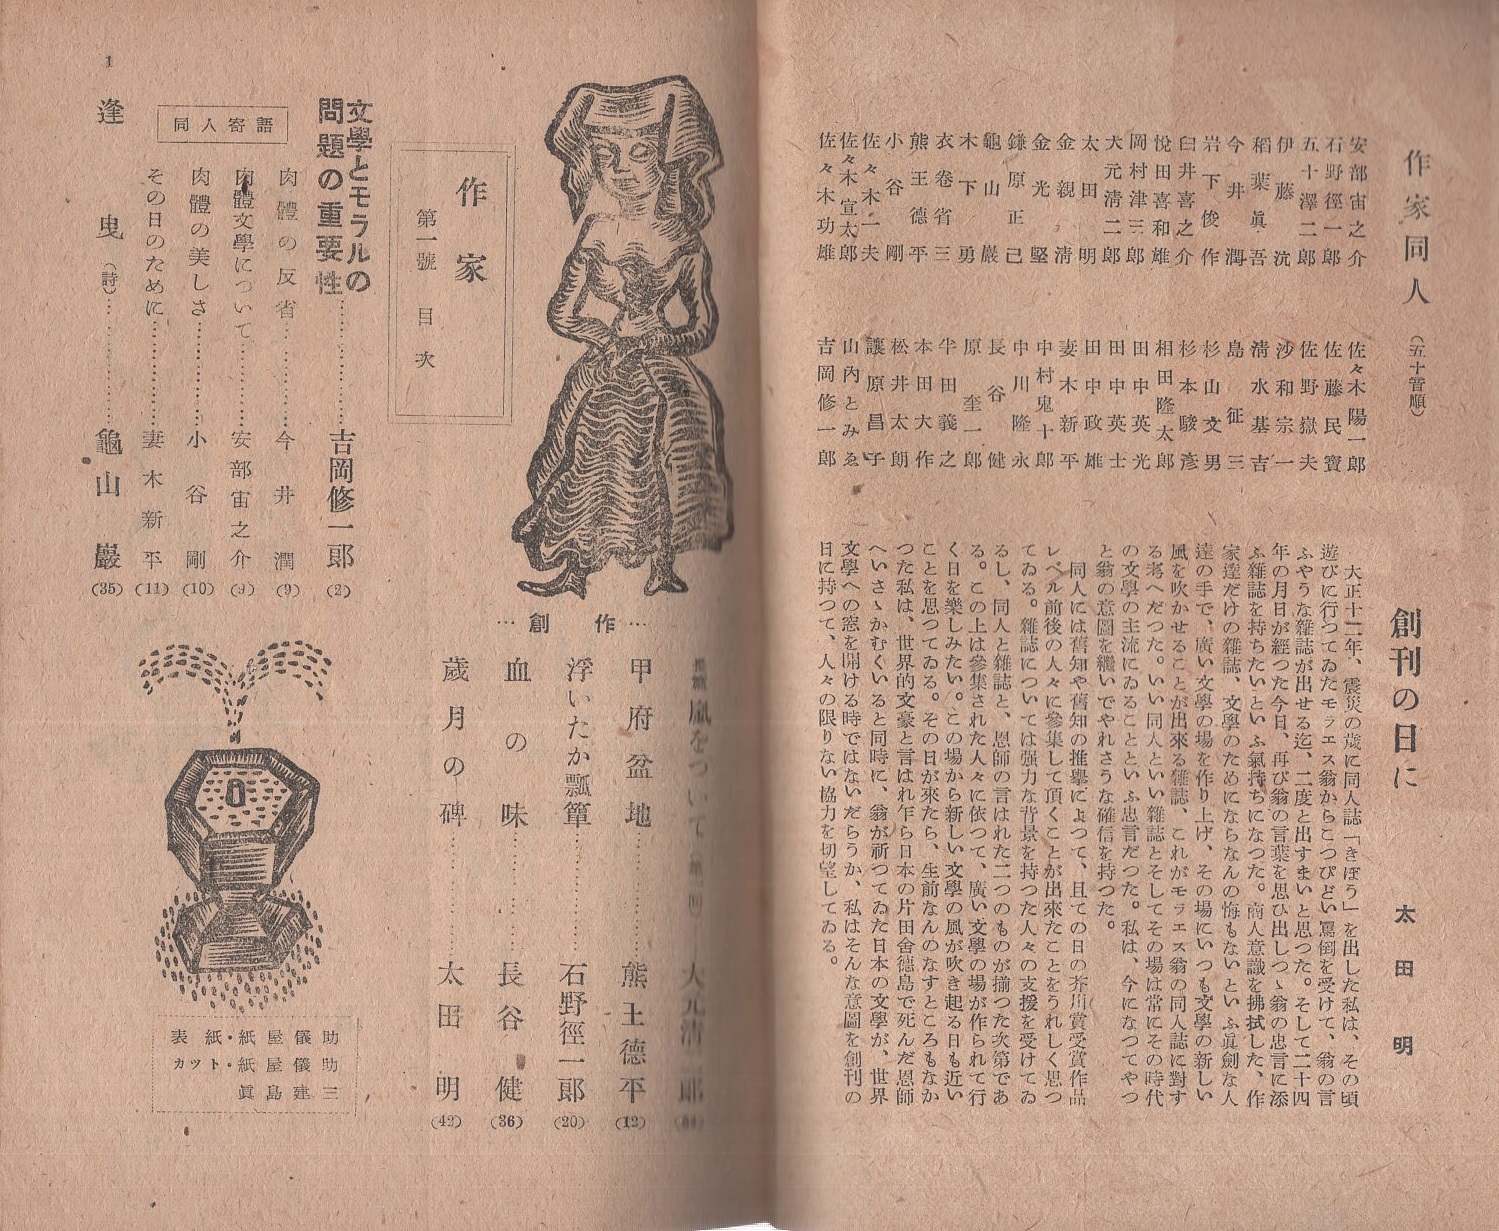 作家同人（五十音順）
安部宙之介
石野徑一郎
五十澤二郎
伊藤沈
稻葉眞吾
今井潤
岩下俊作
臼井喜之介
悅田喜和雄
岡村津三郎
犬元淸二郎
太田明
金親淸
金光堅
鎌原正己
龜山巖
木下勇
衣卷省三
熊王德平
小谷剛
佐々木一夫
佐々木宣太郎
佐々木功雄
佐々木陽一郎
佐藤民寶
佐野嶽夫
沙和宗一
淸水基吉
島征三
杉山文男
杉本駿彥
相田隆太郎
田中英光
田中英士
田中政雄
妻木新平
中村鬼十郎
中川隆永
長谷健
原奎一郎
半田義之
本田大作
松井太朗
讓原昌子
山內とみゑ
吉岡修一郎
創刊の日に
太田明
大正十二年、震災の歲に同人誌「きぼう」を出した私は、その頃
遊びに行つてゐたモラエス翁からこつぴどい罵倒を受けて、翁の言
ふやうな雜誌が出せる迄、二度と出すまいと思つた。そして二十四
年の月日が經つた今日、再び翁の言葉を思ひ出しつゝ翁の忠言に添
ふ雜誌を持ちたいといふ氣持ちになつた。商人意識を拂拭した、作
家達だけの雜誌、文學のためにならなんの悔もないといふ眞劍な人
達の手で、廣い文學の場を作り上げ、その場にいつも文學の新しい
風を吹かせることが出來る雜誌、これがモラエス翁の同人誌に對す
る考へだつた。いい同人といい雜誌とそしてその場は常にその時代
の文學の主流にゐることといふ忠言だつた。私は、今になつてやつ
と翁の意圖を繼いでやれさうな確信を持つた。
同人には舊知や舊知の推擧によつて、且ての日の芥川賞受賞作品
レベル前後の人々に參集して頂くことが出來たことをうれしく思つ
てゐる。雜誌については强力な背景を持つた人々の支援を受けてゐ
るし、同人と雜誌と、恩師の言はれた二つのものが揃つた次第であ
る。この上は參集された人々に依つて、廣い文學の場が作られて行
く日を樂しみたい。この場から新しい文學の風が吹き起る日も近い
ことを思つてゐる。その日が來たら、生前なんのなすところもなか
つた私は、世界的文豪と言はれ乍ら日本の片田舍德島で死んだ恩師
へいさゝかむくいると同時に、翁が祈つてゐた日本の文學が、世界
文學への窓を開ける時ではないだらうか、私はそんな意圖を創刊の
日に持つて、人々の限りない協力を切望してゐる。
作家
第一號 目次
文學とモラルの
問題の重要性……吉岡修一郎(2)
同人寄語
肉體の反省……今井潤(9)
肉體文學について……安部宙之介(9)
肉體の美しさ……小谷剛(10)
その日のために……妻木新平(11)
逢曳（詩）……龜山巖(35)
…創作…
嵐をついて
甲府盆地……熊王德平(12)
浮いたか瓢簞……石野徑一郎(20)
血の味……長谷健(36)
歲月の碑……太田明(42)
表紙・紙屋儀助
カット・紙屋儀助
眞島建三
1